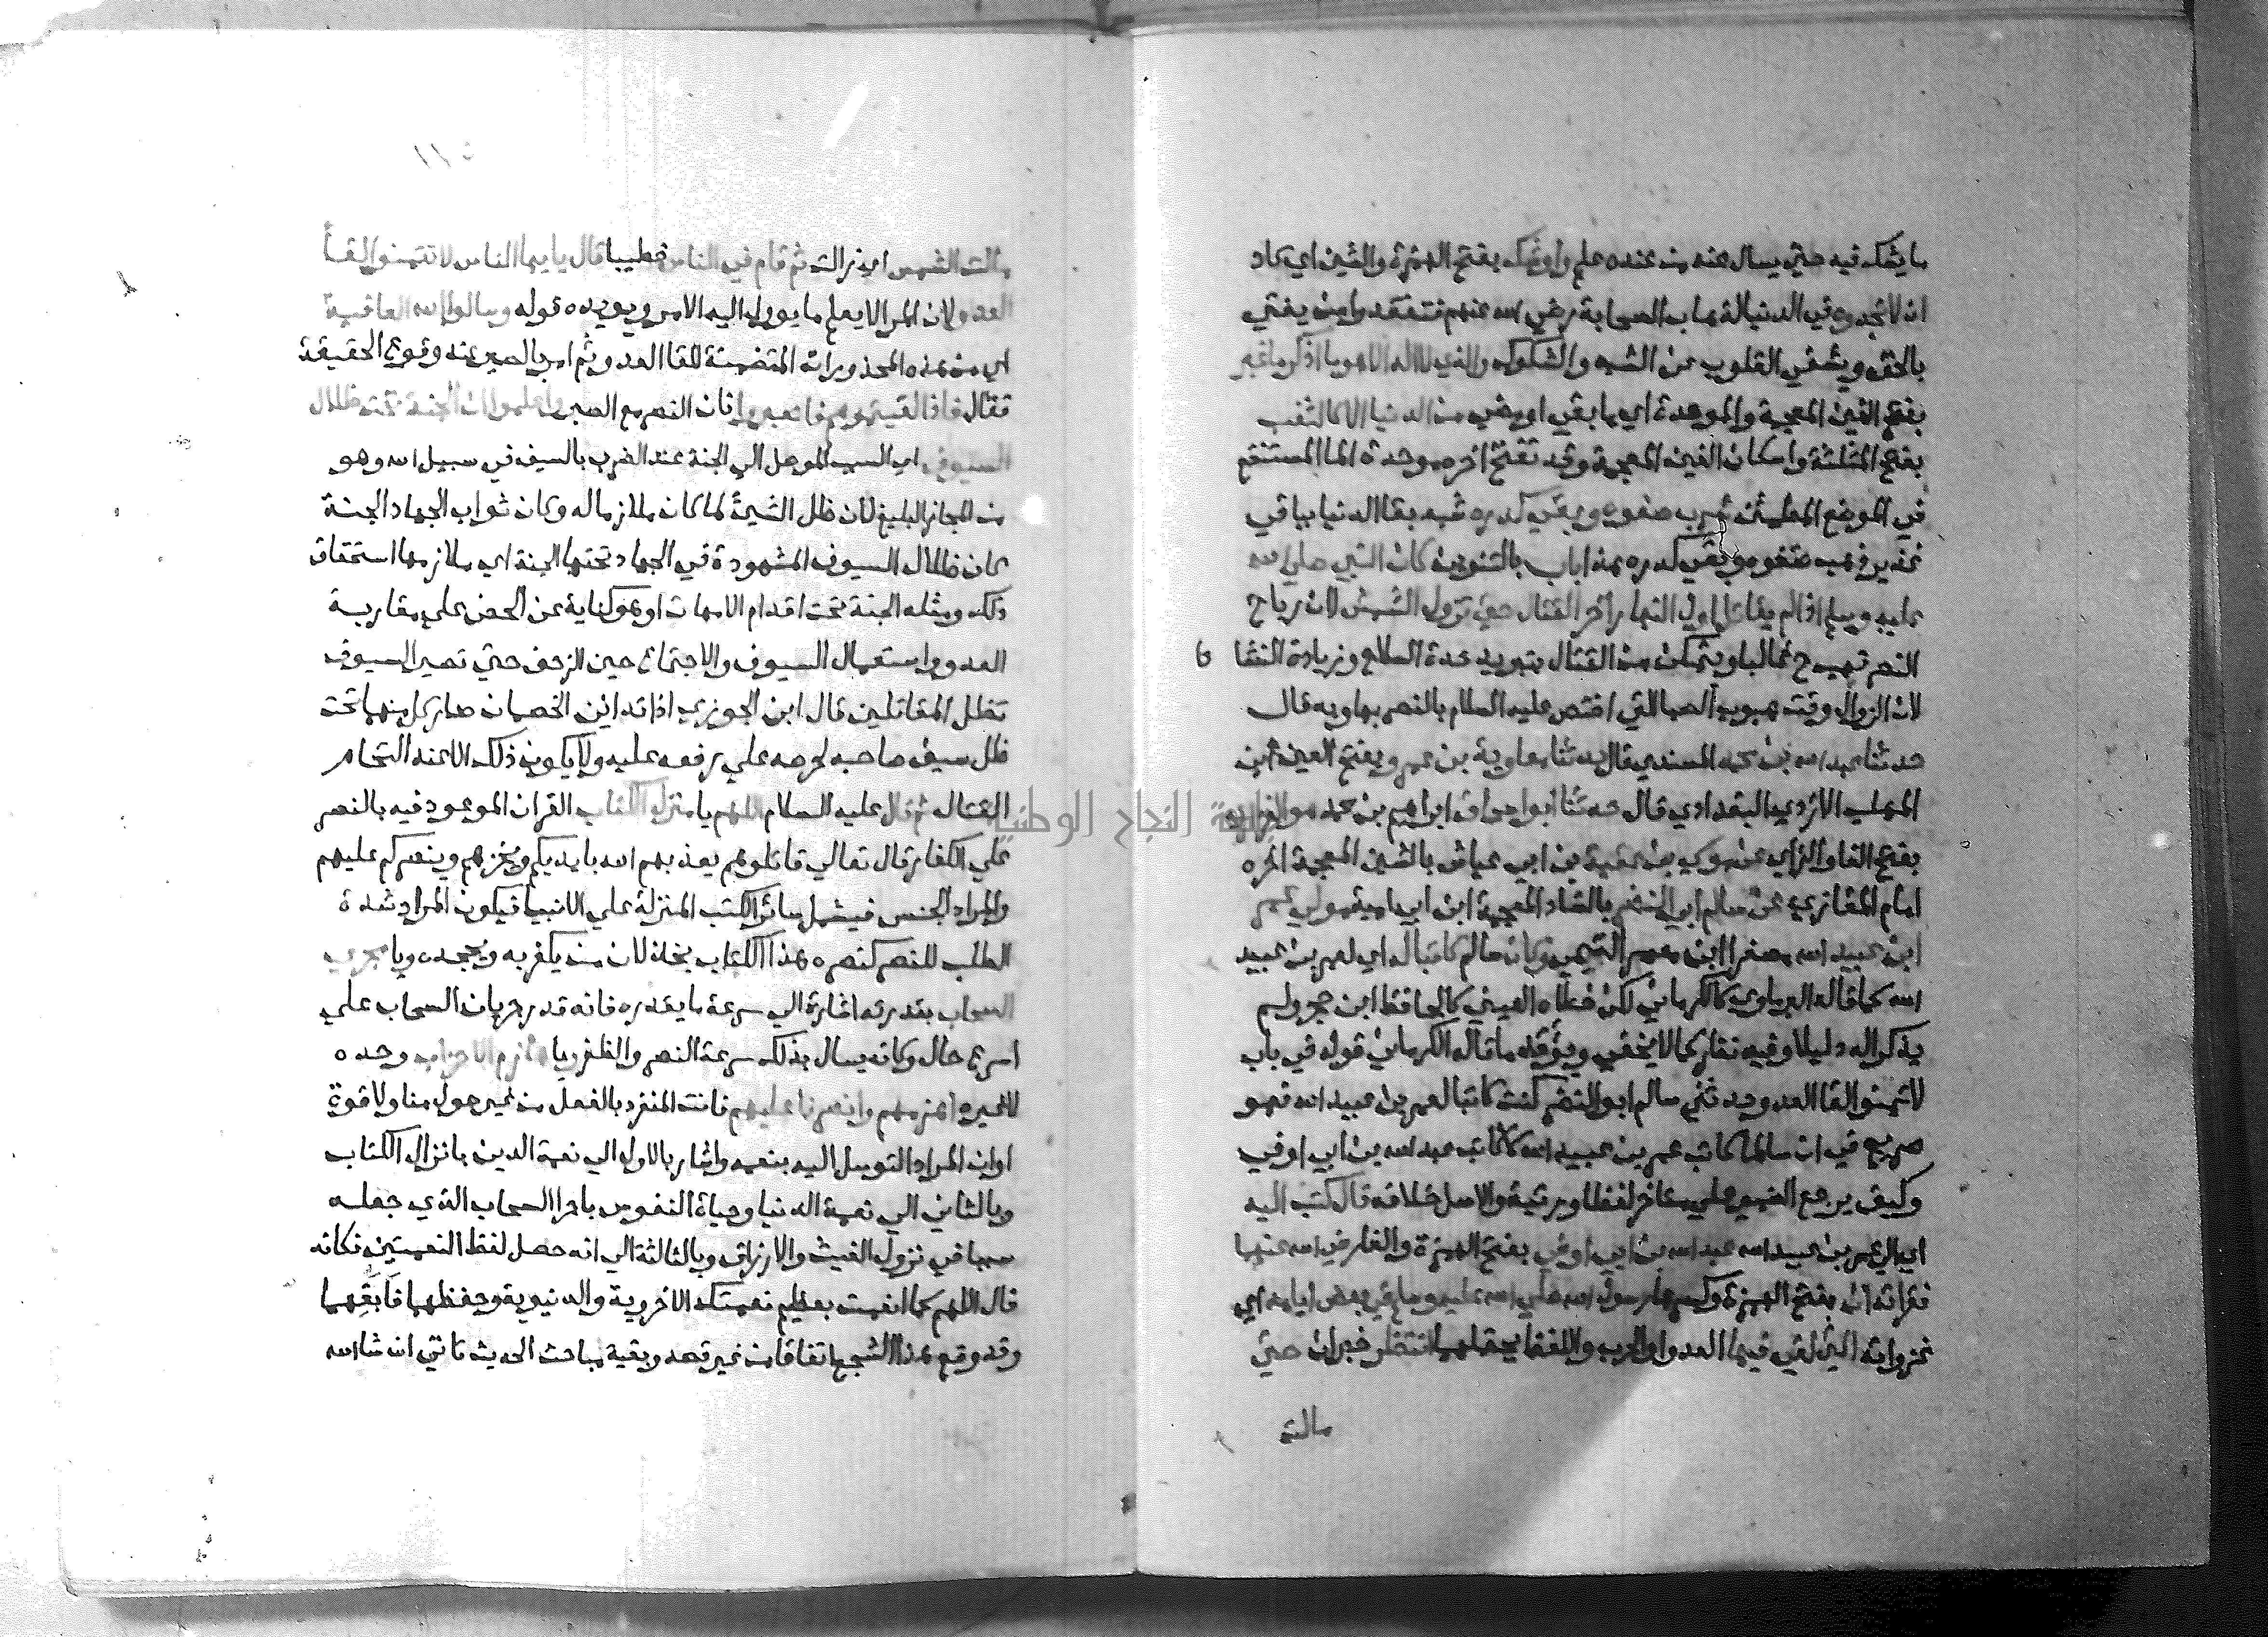 ما يشك فيه حتي يسال عنه من عنده علم واوشك بفتح الهمزة والشين اي كاد
ان لا تجدوه في الدنيا لذهاب الصحابة رضي الله عنهم فتفقدوا من يفتي
بالحق ويشفي القلوب عن الشبه والشكوك والذي لا اله الا هو ما اذكر ما غبر
بفتح الغين المعجمة والموحدة اي ما بقي او مضي من الدنيا الا كالثغب
بفتح المثلثة واسكان الغين المعجمة وقد تفتح اخره موحدة الما المستنقع
في الموضع المطمئن شرب صفوه وبقي كدره شبه بقا الدنيا بباقي
غدير ذهب صفوه وبقي كدره هذا باب بالتنوين كان النبي صلي الله
عليه وسلم اذا لم يقاتل اول النهار اخر القتال حتي تزول الشمس لان رياح
النصر تهب ح غالبا ويتمكن من القتال بتبريد حدة السلاح وزيادة النشا ط
لان الزوال وقت هبوب الصبا التي اختص عليه السلام بالنصر بها وبه قال
حدثنا عبد الله بن محمد المسندي قال حدثنا معاوية بن عمرو بفتح العين ابن
المهلب الازدي البغدادي قال حدثنا ابو اسحاق ابراهيم بن محمد هو الفزاري
بفتح الفا والزاي عن موسي بن عقبة بن ابي عياش بالشين المعجمة اخره
امام المغازي عن سالم ابي النضر بالضاد المعجمة ابن ابي امية مولي عمر
ابن عبيد الله مصغرا ابن معمر التيمي وكان سالم كاتبا له اي لعمر بن عبيد
الله كما قاله البرماوي كالكرماني لكن خطاه العيني كالحافظ ابن حجر ولم
يذكرا له دليلا وفيه نظر كما لا يخفي ويؤيد ما قاله الكرماني قوله في باب
لا تتمنوا لقا العدو حدثني سالم ابو النضر كنت كاتبا لعمر بن عبيد الله فهو
صريح في ان سالما كاتب عمر بن عبيد الله لا كاتب عبد الله بن ابي اوفي
وكيف يرجع الضمير علي متاخر لفظا ورتبة والاصل خلافه قال كتب اليه
اي الي عمر بن عبيد الله عبد الله بن ابي اوفي بفتح الهمزة والفا رضي الله عنهما
فقراته ان بفتح الهمزة وكسرها رسول الله صلي الله عليه وسلم في بعض ايامه اي
غزواته التي لقي فيها العدو او الحرب واللفظ يحتملهما انتظر خبر ان حتي
مالت
مالت الشمس اي زالت ثم قام في الناس خطيبا قال يا ايها الناس لا تتمنوا لقا
العدو لان المرا لا يعلم ما يوول اليه الامر ويويده قوله وسالوا الله العافية
اي من هذه المحذورات المتضمنة للقا العدو ثم امر بالصبر عند وقوع الحقيقة
فقال فاذا لقيتموهم فاصبروا فان النصر مع الصبر واعلموا ان الجنة تحت ظلال
السيوف اي السبب الموصل الي الجنة عند الضرب بالسيف في سبيل الله وهو
من المجاز البليغ لان ظل الشيئ لما كان ملازما له وكان ثواب الجهاد الجنة
كان ظلال السيوف المشهودة في الجهاد تحتها الجنة اي ملازمها استحقاق
ذلك ومثله الجنة تحت اقدام الامهات او هو كناية عن الحض علي مقاربة
العدو واستعمال السيوف والاجتماع حين الزحف حتي تصير السيوف
تظل المقاتلين قال ابن الجوزي اذا تداني الخصمان صار كل منهما تحت
ظل سيف صاحبه لحرصه علي رفعه عليه ولا يكون ذلك الا عند التحام
القتال ثم قال عليه السلام اللهم يا منزل الكتاب القران الموعود فيه بالنصر
علي الكفار قال تعالي قاتلوهم يعذبهم الله بايديكم ويخزهم وينصركم عليهم
والمراد الجنس فيشمل سائر الكتب المنزلة علي الانبيا فيكون المراد شدة
الطلب للنصر كنصره هذا الكتاب بخذلان من يكفر به ويجحده ويا مجري
السحاب بقدرته اشارة الي سرعة ما يقدره فانه قدر جريان السحاب علي
اسرع حال وكانه يسال بذلك سرعة النصر والظفر ويا هازم الاحزاب وحده
لا غيره اهزمهم وانصرنا عليهم فانت المنفرد بالفعل من غير حول منا ولا قوة
او ان المراد التوسل اليه بنعمه واشار بالاول الي نعمة الدين بانزال الكتاب
وبالثاني الي نعمة الدنيا وحياة النفوس باجرا السحاب الذي جعله
سببا في نزول الغيث والارزاق وبالثالثة الي انه حصل لفظ النعمتين فكانه
قال اللهم كما انعمت بعظيم نعمتك الاخروية والدنيوية وحفظهما فابقهما
وقد وقع هذا السجع اتفاقا من غير قصد وبقية مباحث الحديث تاتي ان شا الله
جامعة النجاح الوطنية